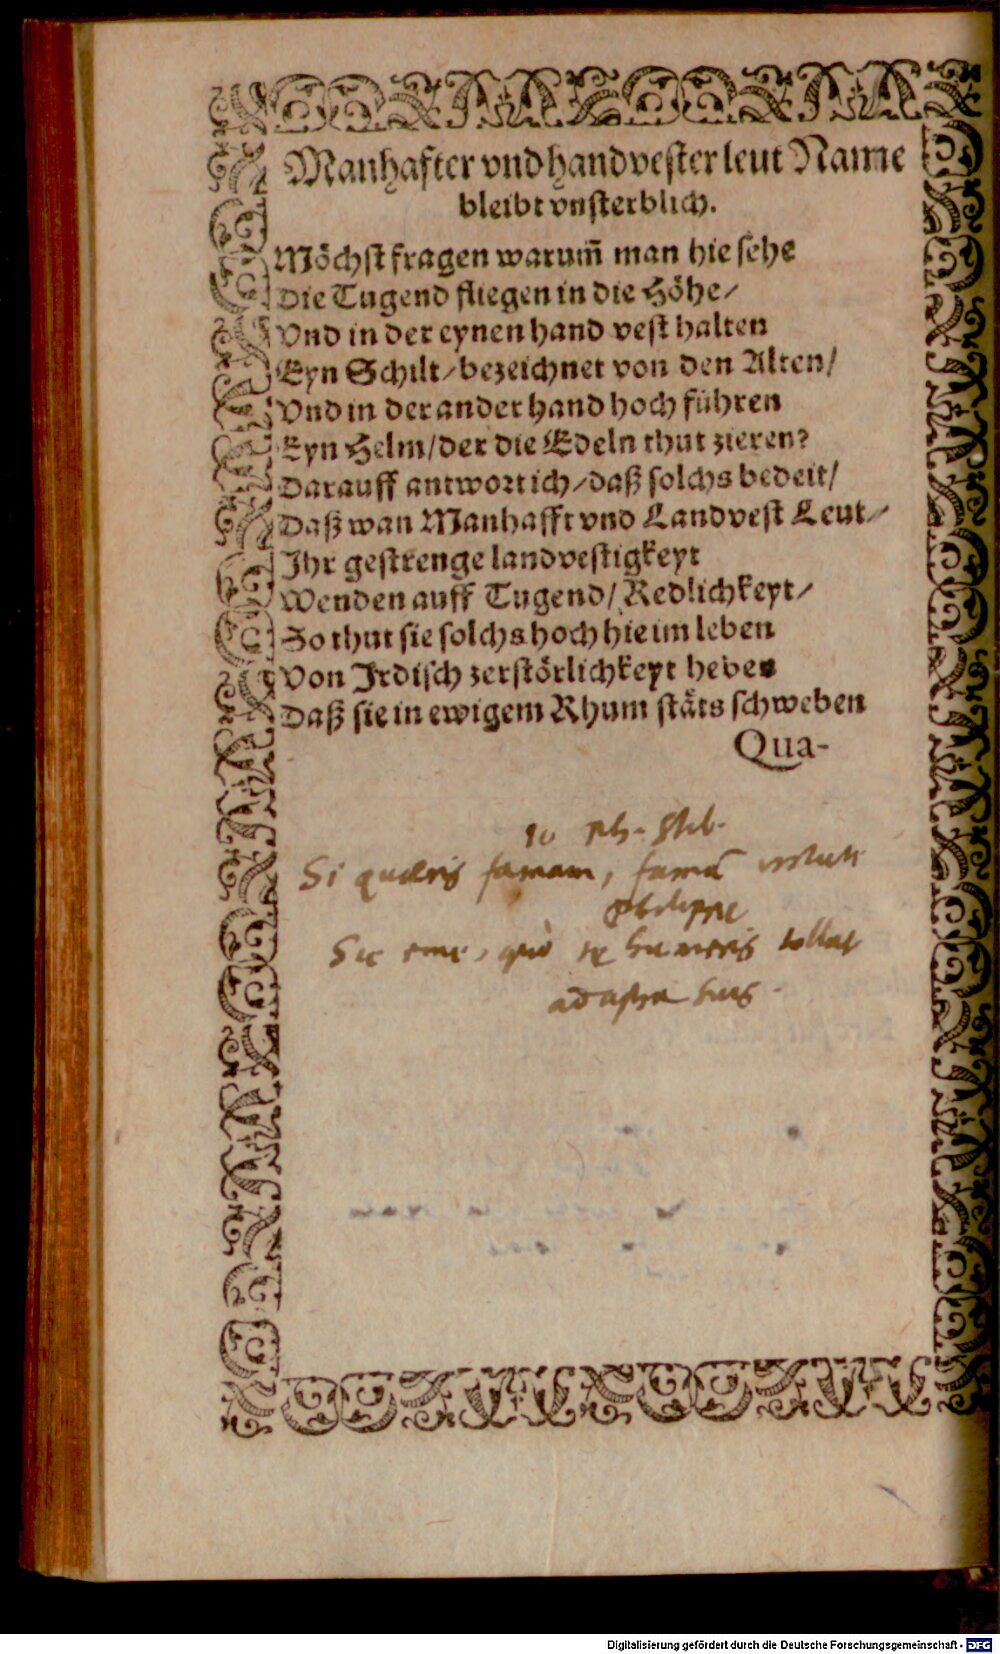 Manhafter vnd handvester leut Name
bleibt vnsterblich.
Möchst fragen warum̃ man hie sehe
Die Tugend fliegen in die Höhe/
Vnd in der eynen hand vest halten
Eyn Schilt/bezeichnet von den Alten/
Vnd in der ander hand hoch führen
Eyn Helm/der die Edeln thut zieren?
Darauff antwort ich/daß solchs bedeit/
Daß wan Manhafft vnd Landvest Leut/
Ihr gestrenge landvestigkeyt
Wenden auff Tugend/Redlichkeyt/
So thut sie solchs hoch hie im leben
Von Irdisch zerstörlichkeyt heben
Daß sie in ewigem Rhum stäts schweben
Qua-
Io Ph.
Si quæris famam, famā virtute
Philippe
Sic eme, quò te humeris tollat
ad astra suis.
Digitalisierung gefördert durch die Deutsche Forschungsgemeinschaft - DFG